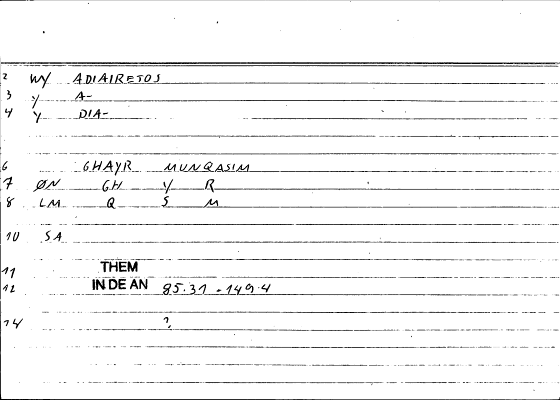 2 WY ADIAIRETOS
3 Y A-
4 Y DIA-
6 GHAYR MUNQASIM
7 ØN GH Y R
8 LM Q S M
10 SA
11 THEM
12 IN DE AN 85.31 - 149.4
14 ?